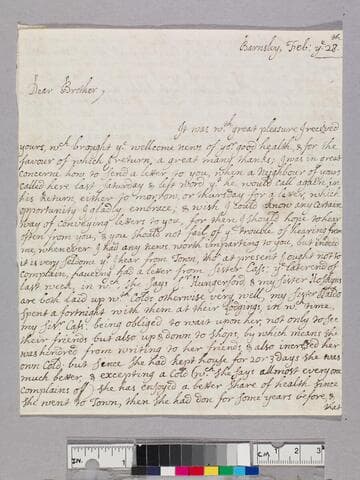 Barnsley, Feb: ye 28th
Dear Brother,
It was wth great pleasure I received
yours, wch brought ye wellcome news of yor good health, & for the
favour of which I return, a great many thanks; I was in great
concern how to send a letter to you, when a Neighbour of yours
called here last Saturday & left word yt he would call again in
his return either to morrow, or thursday for a letter, which
opportunity I gladly embrace, & wish I could know any certain
way of conveying letters to you, for then I should hope to hear
often from you, & you should not fail of ye trouble of hearing from
me, whenever I had any news worth imparting to you, but indeed
it is very seldome yt I hear from Town, tho' at present I ought not to
complain, haveing had a letter from Sister Cass: ye later end of
last week, in wch she says Hungerford, & my Sister
are both laid up wth Colds otherwise very well, my Sister
spent a fortnight with them at their Lodgings, in wch time,
my Sisr Cass: being obliged to wait upon her, not only to see
their friends but also up & down to shops, by which means she
was hindred from writing to her friends, & also increased her
own Cold, but since she had kept house for 2 or 3 days she was
much better, & excepting a Cold (wch she says allmost everyone
complains of) she has enjoy'd a better share of health since
she went to Town, then she had don for some years before, &
that
IN.
CM.